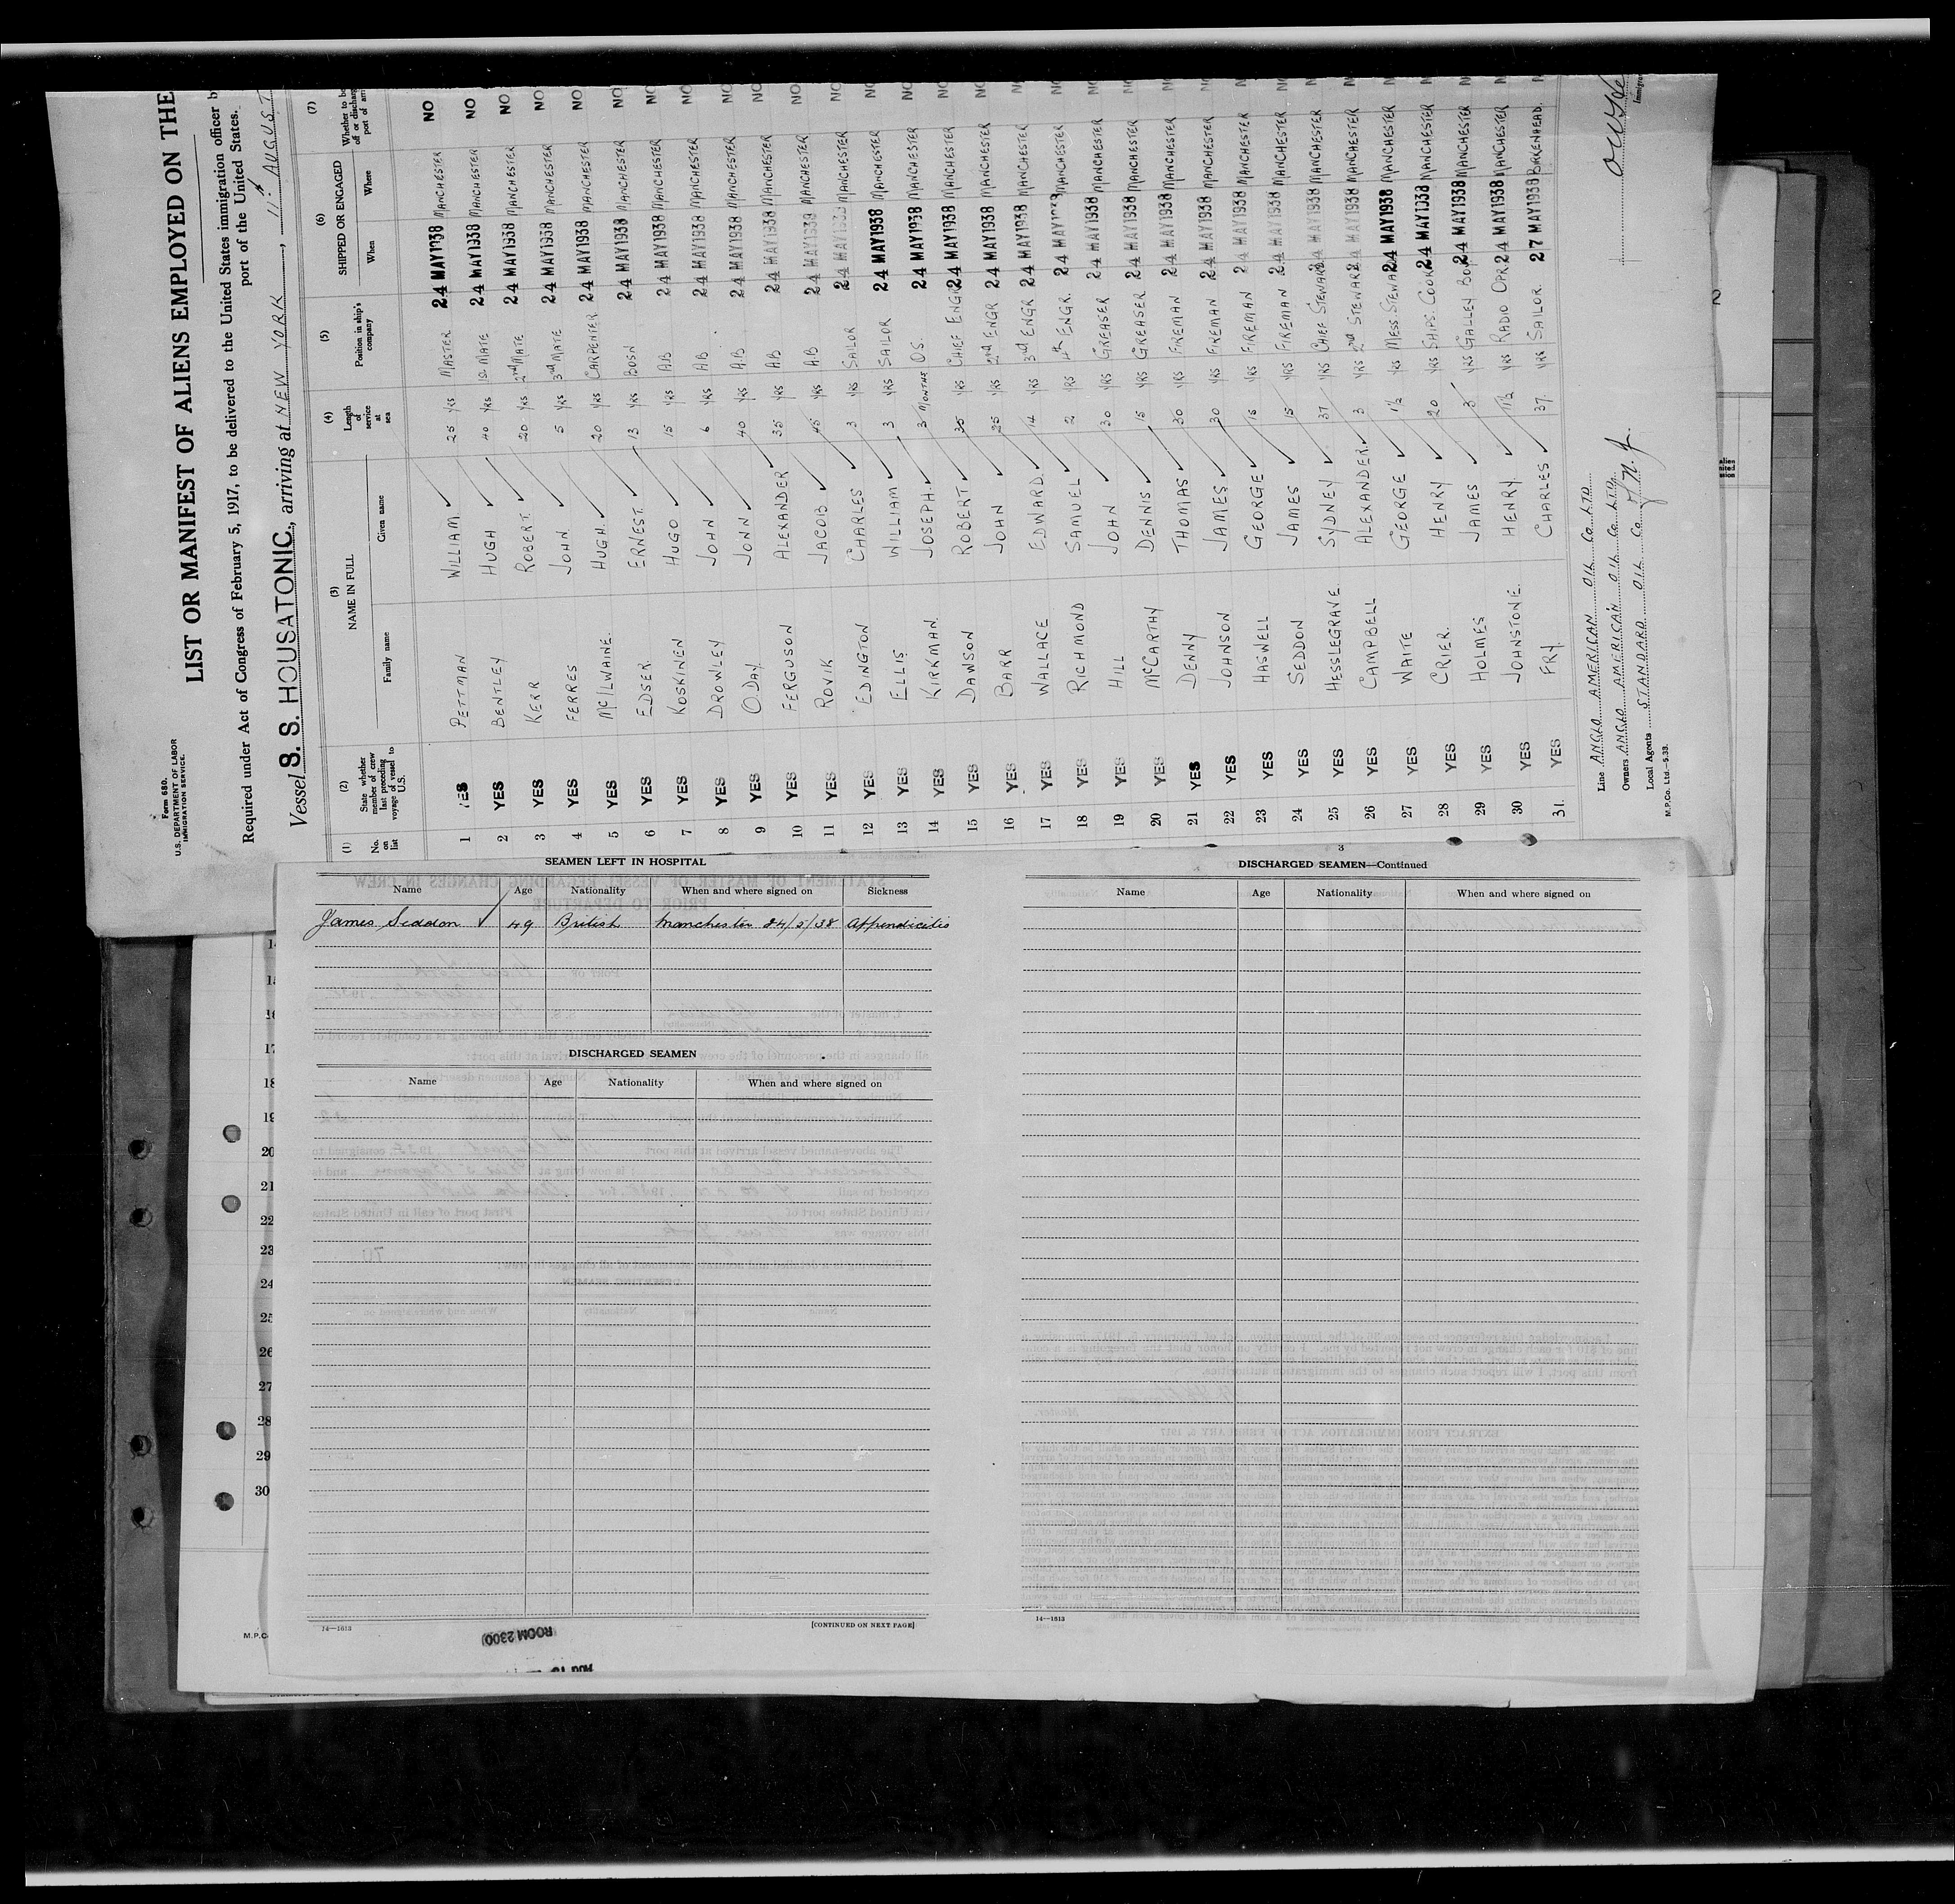 Form 680.
U.S. DEPARTMENT OF LABOR
IMMIGRATION SERVICE.
LIST OR MANIFEST OF ALIENS EMPLOYED ON THE
Required under Act of Congress of February 5, 1917, to be delivered to the United States immigration officer b
port of the United States.
Vessel S. S. HOUSATONIC, arriving at NEW YORK, 11th AUGUST
(1) No. on list (2) State whether member of crew last preceding voyage of vessel to U.S. (3) NAME IN FULL Family name Given name (4) Length of service at sea (5) Position in ship's company (6) SHIPPED OR ENGAGED When Where (7) Whether to be off or discharg port of arri
1 YES PETTMAN WILLIAM 25 YRS MASTER 24 MAY 1938 MANCHESTER NO
2 YES BENTLEY HUGH 40 YRS 1st MATE 24 MAY 1938 MANCHESTER NO
3 YES KERR ROBERT 20 YRS 2nd MATE 24 MAY 1938 MANCHESTER NO
4 YES FERRES JOHN 5 YRS 3rd MATE 24 MAY 1938 MANCHESTER NO
5 YES McILWAINE HUGH 20 YRS CARPENTER 24 MAY 1938 MANCHESTER NO
6 YES EDSER ERNEST 13 YRS BOSN 24 MAY 1938 MANCHESTER NO
7 YES KOSKINEN HUGO 15 YRS A.B 24 MAY 1938 MANCHESTER NO
8 YES DROWLEY JOHN 6 YRS A.B 24 MAY 1938 MANCHESTER NO
9 YES ODAY JOHN 40 YRS A.B 24 MAY 1938 MANCHESTER NO
10 YES FERGUSON ALEXANDER 35 YRS A.B 24 MAY 1938 MANCHESTER NO
11 YES ROVIK JACOB 45 YRS A.B 24 MAY 1938 MANCHESTER NO
12 YES EDINGTON CHARLES 3 YRS SAILOR 24 MAY 1938 MANCHESTER NO
13 YES ELLIS WILLIAM 3 YRS SAILOR 24 MAY 1938 MANCHESTER NO
14 YES KIRKMAN JOSEPH 3 MONTHS O.S. 24 MAY 1938 MANCHESTER NO
15 YES DAWSON ROBERT 35 YRS CHIEF ENGR 24 MAY 1938 MANCHESTER NO
16 YES BARR JOHN 25 YRS 2nd ENGR 24 MAY 1938 MANCHESTER NO
17 YES WALLACE EDWARD 14 YRS 3rd ENGR 24 MAY 1938 MANCHESTER NO
18 YES RICHMOND SAMUEL 2 YRS 4th ENGR. 24 MAY 1938 MANCHESTER NO
19 YES HILL JOHN 30 YRS GREASER 24 MAY 1938 MANCHESTER N
20 YES McCARTHY DENNIS 15 YRS GREASER 24 MAY 1938 MANCHESTER N
21 YES DENNY THOMAS 30 YRS FIREMAN 24 MAY 1938 MANCHESTER N
22 YES JOHNSON JAMES 30 YRS FIREMAN 24 MAY 1938 MANCHESTER N
23 YES HASWELL GEORGE 15 YRS FIREMAN 24 MAY 1938 MANCHESTER N
24 YES SEDDON JAMES 15 YRS FIREMAN 24 MAY 1938 MANCHESTER N
25 YES HESSLEGRAVE SYDNEY 37 YRS CHIEF STEWARD 24 MAY 1938 MANCHESTER N
26 YES CAMPBELL ALEXANDER 3 YRS 2nd STEWARD 24 MAY 1938 MANCHESTER N
27 YES WAITE GEORGE 1½ YRS MESS STEWARD 24 MAY 1938 MANCHESTER N
28 YES CRIER. HENRY 20 YRS SHIPS. COOK 24 MAY 1938 MANCHESTER N
29 YES HOLMES JAMES 3 YRS GALLEY BOY 24 MAY 1938 MANCHESTER N
30 YES JOHNSTONE HENRY. 11½ YRS RADIO OPR. 24 MAY 1938 MANCHESTER N
31. YES FRY. CHARLES 37. YRS SAILOR. 27 MAY 1938 BIRKENHEAD. N
Line ANGLO AMERICAN OIL Co LTD
Owners ANGLO AMERICAN OIL Co LTD.
Local Agents STANDARD OIL Co of N. J.
M.P.Co. Ltd.—5.33.
SEAMEN LEFT IN HOSPITAL
Name Age Nationality When and where signed on Sickness
James Seddon 49 British Manchester 24/5/38 Appendicitis
DISCHARGED SEAMEN
Name Age Nationality When and where signed on
14—1613
[CONTINUED ON NEXT PAGE]
ROOM 2300
3
DISCHARGED SEAMEN—Continued
Name Age Nationality When and where signed on
14—1613
17
18
19
20
21
22
23
24
25
26
27
28
29
30
M.P.C